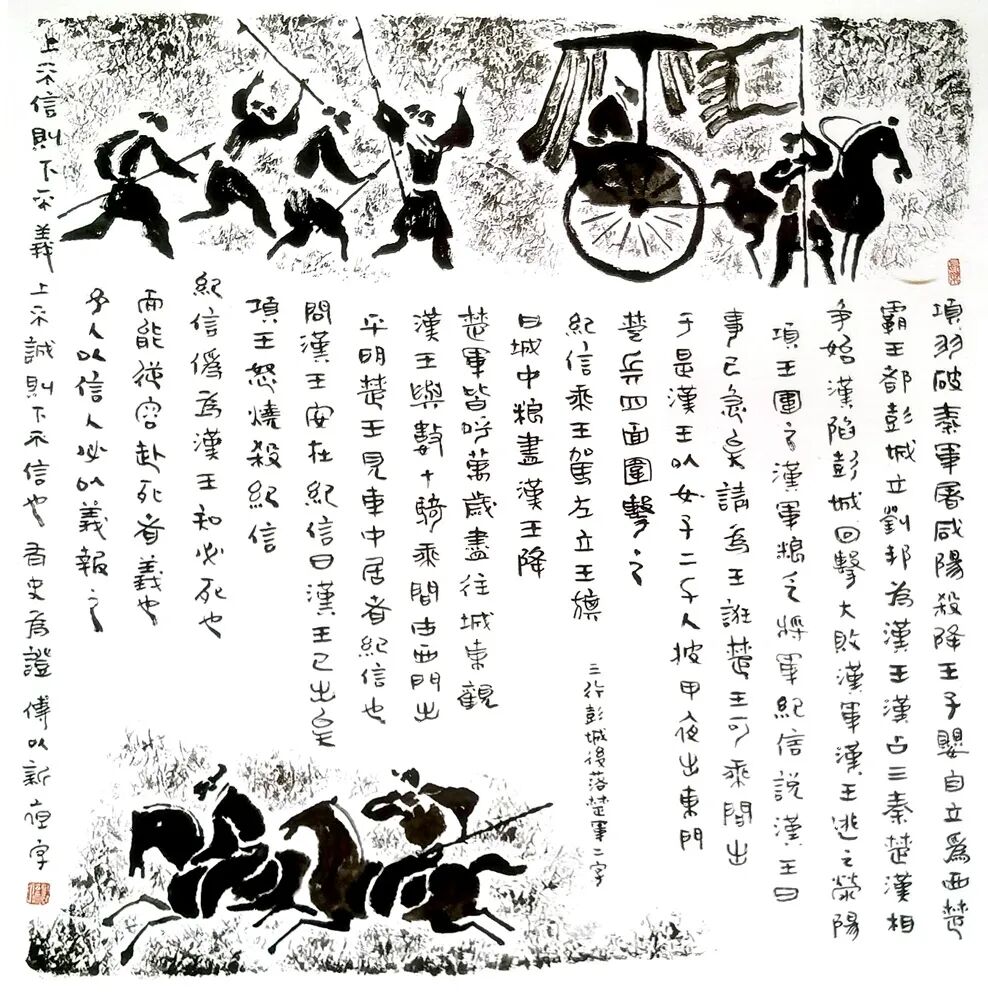 項羽破秦軍屠咸陽殺降王子嬰自立為西楚
霸王都彭城立劉邦為漢王漢占三秦楚漢相
爭始漢陷彭城回擊大敗漢軍漢王逃之滎陽
項王圍之漢軍粮乏將軍紀信説漢王曰
事已急矣請為王誑楚王可乘間出
于是漢王以女子二千人披甲夜出東門
楚兵四面圍擊之
紀信乘王駕左立王旗
曰城中粮盡漢王降
楚軍皆呼萬歲盡往城東觀
漢王與數十騎乘間由西門出
平明楚王見車中居者紀信也
問漢王安在紀信曰漢王已出矣
項王怒燒殺紀信
紀信偽為漢王知必死也
而能從容赴死者義也
予人以信人必以義報之
上不信則下不義上不誠則下不信也有史為證傅以新
三行彭城後落楚軍二字